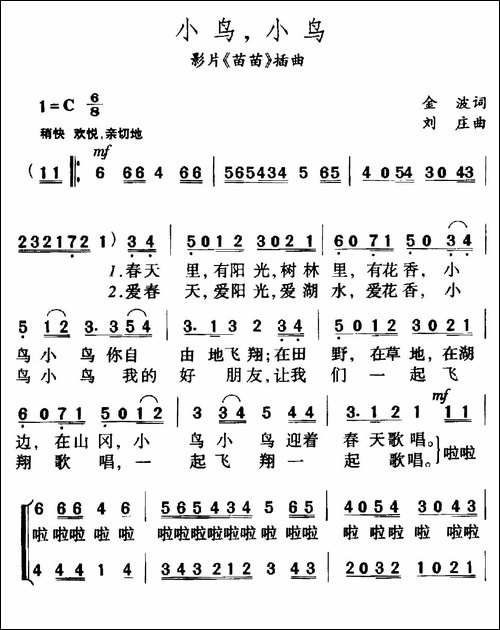 小鸟，小鸟
影片《苗苗》插曲
1=C 6/8
金 波词
刘 庄曲
稍快 欢悦、亲切地
mf
(11 6 66 4 66 565434 5 65 4 054 30 43
232172 1) 34 5012 3021 6071 50 34
1.春天 里,有阳光,树林 里,有花香, 小
2.爱春 天,爱阳光,爱湖 水,爱花香, 小
5 12 3. 354 3. 1234 5 12 5012 3021
鸟 小鸟你自 由 地飞翔;在田 野,在草地,在湖
鸟 小鸟 我的 好 朋友,让我 们 一起飞
mf
6071 5012 3 334 5 44 3. 121 11
边, 在山冈,小 鸟 小鸟 迎着 春 天歌唱。 啦啦
翔 歌唱,一 起 飞翔 一 起 歌唱。
6 66 4 6 565434 5 65 4054 3043
啦 啦啦 啦 啦 啦啦啦啦啦啦 啦 啦啦 啦 啦啦 啦 啦啦
4 44 1 4 343212 3 43 2032 1021